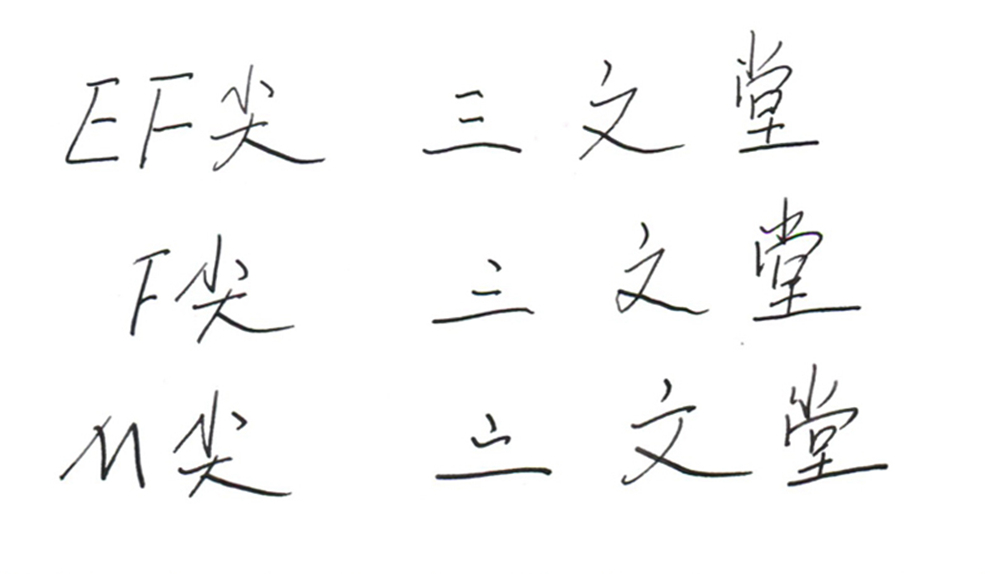 EF尖 三文堂
F尖 三文堂
M尖 三文堂